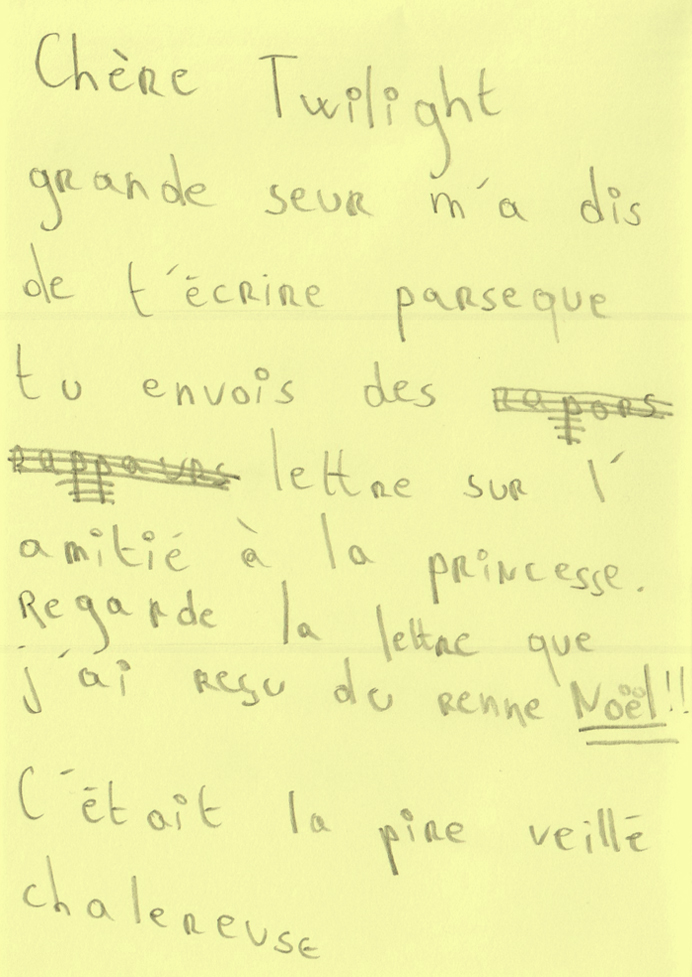 Chère Twilight
grande seur m'a dis
de t'écrire parseque
tu envois des rapors
rappaurs lettre sur l'
amitié à la princesse.
Regarde la lettre que
j'ai resu du renne Noël!!
C'était la pire veillé
chalereuse